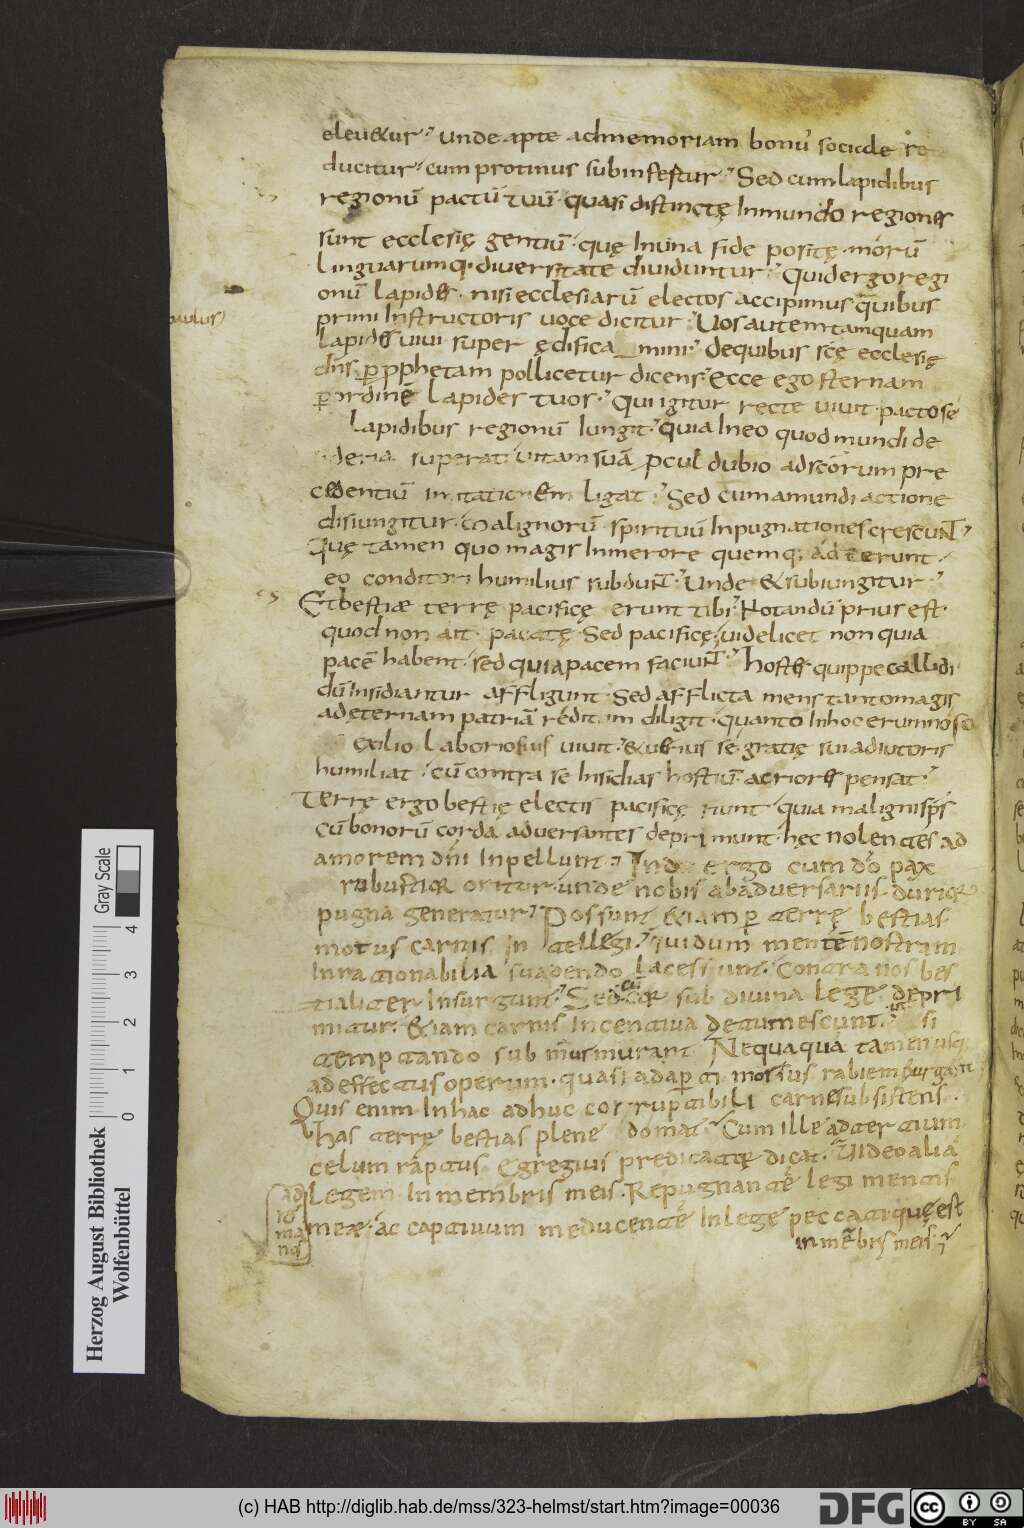 eleu&ur; unde apte ad memoriam bonũ sociale re
ducitur; cum protinus subinfertur; Sed cum lapidibus
regionũ pactũ tuũ; quasi distinctę In mundo regiones
sunt ecclesię gentiũ; quę In una fide positę morũ
linguarumq; diversitate dividuntur; Quid ergo regi
onũ lapides nisi ecclesiarũ electos accipimus quibus
paulus
primi Instructoris voce dicitur; Uos autem tamquam
lapides vivi super ędificamini; de quibus scę ecclesię
dñs p pphetam pollicetur dicens; Ecce ego sternam
p ordinẽ lapides tuos; Qui igitur recte vivit pacto se
lapidibus regionũ Iungit; quia In eo quod mundi de
sideria superat vitam suã pcul dubio ad scorum pre
cedentiũ imitationem ligat; Sed cum a mundi actione
disiungitur malignorũ spirituũ Inpugnationes crescunt;
Quę tamen quo magis In merore quemq; adterunt
eo conditori humilius subdunt; Unde & subiungitur;
Et bestiæ terrę pacificę erunt tibi; Notandũ prius est
quod non ait pacatę Sed pacificę; videlicet non quia
pacẽ habent sed quia pacem faciunt; hostes quippe callidi
dũ Insidiantur affligunt Sed afflicta mens tanto magis
ad eternam patriã reditum diligit quanto In hoc erumnoso
exilio laboriosius vivit & uberius se gratię sui adiutoris
humiliat; cũ contra se Insidias hostiũ acriores pensat;
Terrę ergo bestię electis pacificę sunt quia maligni sps
cũ bonorũ corda adversantes deprimunt hęc nolentes ad
amorem dñi Inpellunt; Inde ergo cum do pax
robustior oritur unde nobis ab adversariis durior
pugna generatur; Possunt & iam p terrę bestias
motus carnis Intellegi; qui dum mentẽ nostrim
Inrationabilia suadendo lacessunt; Contra nos bes
tialiter Insurgunt; Sed cũ cor sub divina lege depri
mitur & iam carnis Incentiva detumescunt ut si
temptando sub murmurant Nequaquã tamen usq;
ad effectus operum quasi ad apti morsus rabiem purgant
Quis enim In hac adhuc corruptibili carne subsistens
has terrę bestias plene domat; Cum ille ad tertium
celum raptus egregius predicator dicat; Uideo aliã
legem In membris meis Repugnantẽ legi mentis
meæ ac captivum me ducentẽ In lege peccati quę est
in mẽbris meis
ad
ro
ma
nos
Herzog August Bibliothek
Wolfenbüttel
Gray Scale
0 1 2 3 4
(c) HAB http://diglib.hab.de/mss/323-helmst/start.htm?image=00036
DFG
cc BY SA